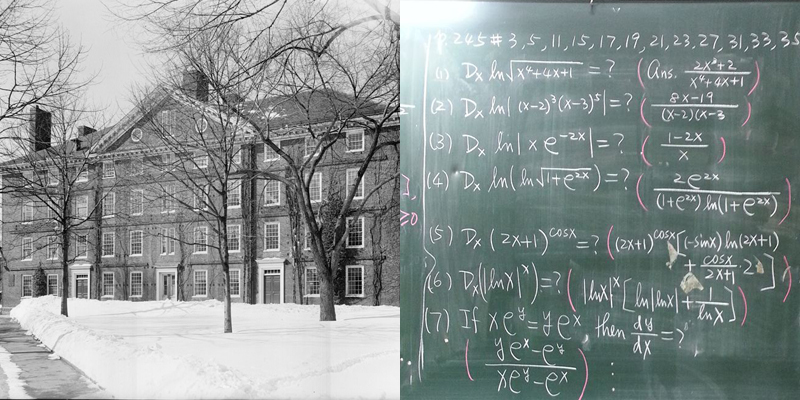 P. 245 # 3, 5, 11, 15, 17, 19, 21, 23, 27, 31, 33, 35
(1) Dx ln√(x⁴+4x+1) = ? (Ans. (2x³+2)/(x⁴+4x+1))
(2) Dx ln|(x-2)³(x-3)⁵| = ? ((8x-19)/((x-2)(x-3))
(3) Dx ln|x e^(-2x)| = ? ((1-2x)/x)
(4) Dx ln(ln√(1+e^(2x))) = ? (2e^(2x)/((1+e^(2x)) ln(1+e^(2x))))
(5) Dx (2x+1)^(cosx) = ? ((2x+1)^(cosx)[(-sinx) ln(2x+1) + cosx/(2x+1) · 2])
(6) Dx(|lnx|^x) = ? (|lnx|^x [ln|lnx| + 1/lnx])
(7) If xe^y = ye^x then dy/dx = ?
((ye^x - e^y)/(xe^y - e^x))